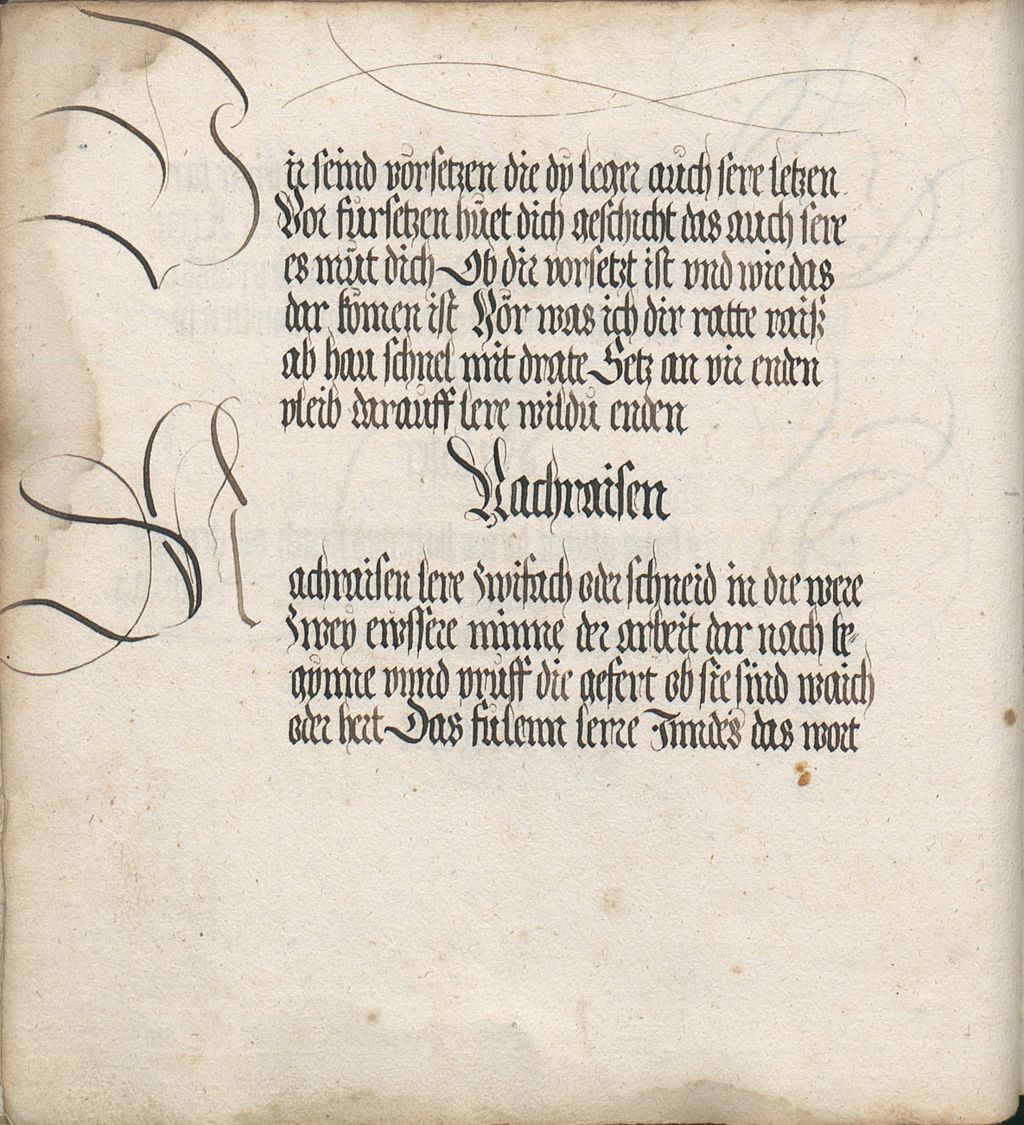 Vir seind vorsetzen die dy leger auch sere letzen
Vor fursetzen huet dich geschicht das auch sere
es müt dich Ob dir vorsetzt ist vnd wie das
dar komen ist Hör was ich dir ratte raiß
ab hau schnel mit drate Setz an vir enden
pleib darauff lere wildu enden
Nachraisen
Nachraisen lere zwifach oder schneid in die were
Zwey ewssere minne der arbeit dar nach be-
gynne vnnd pruff die gefert ob sie sind waich
oder hert Das fulenn lerre Inndes das wort